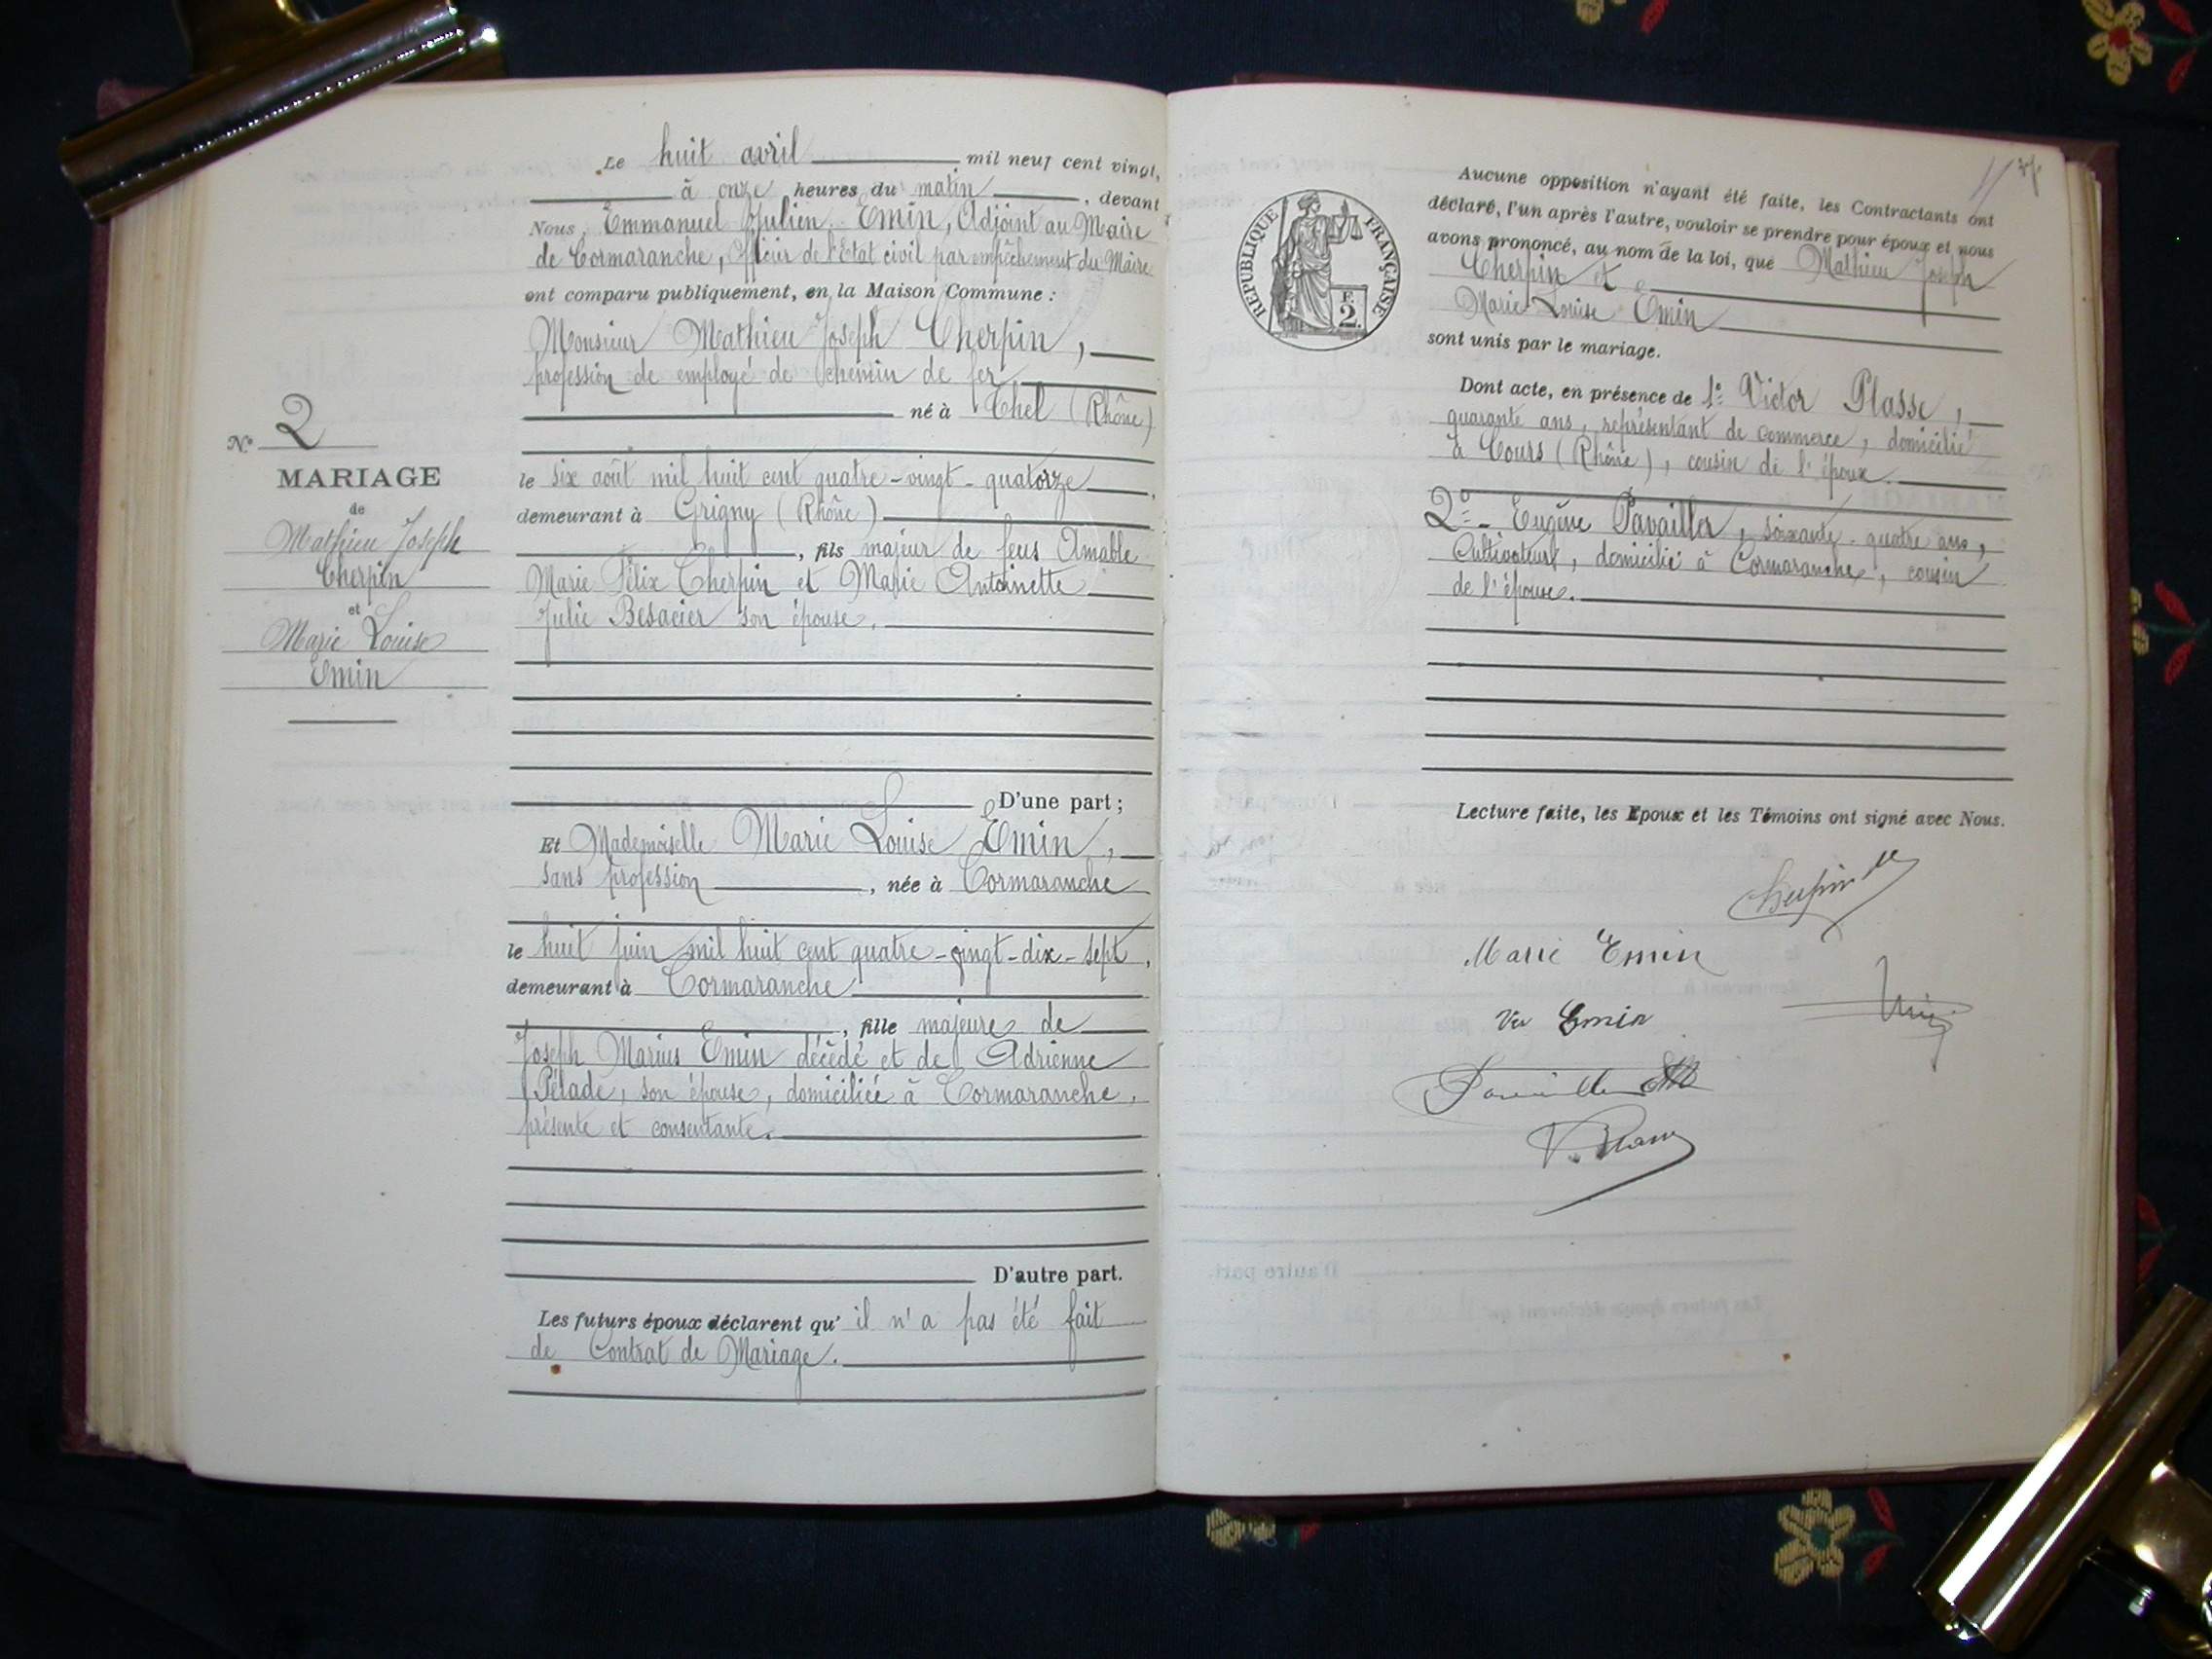 Le huit avril mil neuf cent vingt,
à onze heures du matin, devant
Nous, Emmanuel Julien Emin, Adjoint au Maire
de Cormaranche, Officier de l'Etat civil par empêchement du Maire
ont comparu publiquement, en la Maison Commune :
Monsieur Mathieu Joseph Cherpin,
profession de employé de chemin de fer
né à Thel (Rhône)
le six août mil huit cent quatre-vingt-quatorze,
demeurant à Grigny (Rhône)
, fils majeur de feus Amable
Marie Félix Cherpin et Marie Antoinette
Julie Besacier son épouse.
D'une part ;
Et Mademoiselle Marie Louise Emin,
sans profession, née à Cormaranche
le huit juin mil huit cent quatre-vingt-dix-sept,
demeurant à Cormaranche
, fille majeure de
Joseph Marius Emin décédé et de Adrienne
Pélade, son épouse, domiciliée à Cormaranche,
présente et consentante.
D'autre part.
Les futurs époux déclarent qu' il n'a pas été fait
de Contrat de Mariage.
N° 2
MARIAGE
de
Mathieu Joseph
Cherpin
et
Marie Louise
Emin
RÉPUBLIQUE FRANÇAISE
F.
2.
Aucune opposition n'ayant été faite, les Contractants ont
déclaré, l'un après l'autre, vouloir se prendre pour époux et nous
avons prononcé, au nom de la loi, que Mathieu Joseph
Cherpin et
Marie Louise Emin
sont unis par le mariage.
Dont acte, en présence de 1° Victor Plasse,
quarante ans, représentant de commerce, domicilié
à Cours (Rhône), cousin de l'époux.
2° - Eugène Pavailler, soixante-quatre ans,
Cultivateur, domicilié à Cormaranche, cousin
de l'épouse.
Lecture faite, les Epoux et les Témoins ont signé avec Nous.
Cherpin
Marie Emin
Vve Emin
Emin
V. Plasse